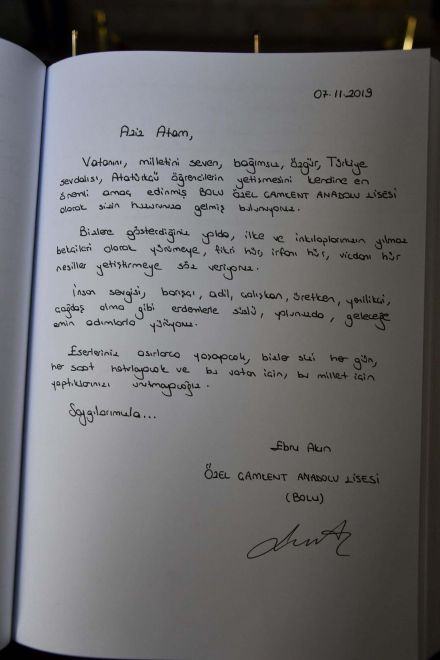 07.11.2019
Aziz Atam,
Vatanını, milletini seven, bağımsız, özgür, Türkiye
sevdalısı, Atatürkçü öğrencilerin yetişmesini kendine en
önemli amaç edinmiş BOLU ÖZEL ÇAMKENT ANADOLU LİSESİ
olarak sizin huzurunuza gelmiş bulunuyoruz.
Bizlere gösterdiğiniz yolda, ilke ve inkılaplarınızın yılmaz
bekçileri olarak yürümeye, fikri hür, irfanı hür, vicdanı hür
nesiller yetiştirmeye söz veriyoruz.
İnsan sevgisi, barışçı, adil, çalışkan, üretken, yenilikçi,
çağdaş olma gibi erdemlerle süslü, yolunuzda, geleceğe
emin adımlarla yürüyoruz.
Eserleriniz asırlarca yaşayacak, bizler sizi her gün,
her saat hatırlayacak ve bu vatan için, bu millet için
yaptıklarınızı unutmayacağız.
Saygılarımızla...
Ebru Akın
ÖZEL ÇAMKENT ANADOLU LİSESİ
(BOLU)